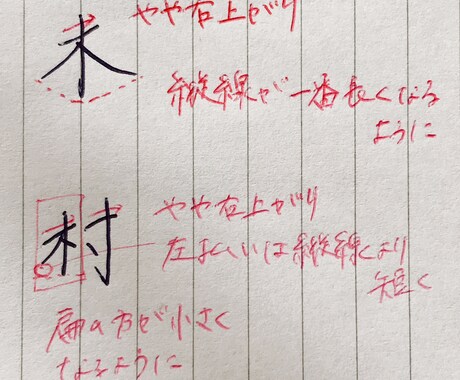 木
やや右上がり
縦線が一番長くなる
ように
村
やや右上がり
左払いは縦線より
短く
扁の方が小さく
なるように